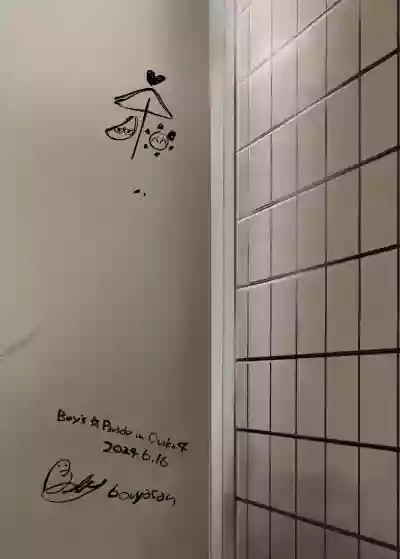 Boy's ☆ Parade in Osaka
2024 6.16
bouyasan